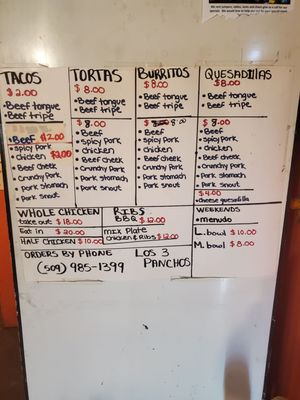 TACOS
$2.00
• Beef tongue
• Beef tripe
• Beef $2.00
• Spicy Pork
• Chicken $2.00
• Beef Cheek
• Crunchy Pork
• Pork Stomach
• Pork Snout
TORTAS
$8.00
• Beef tongue
• Beef tripe
$8.00
• Beef
• Spicy Pork
• Chicken
• Beef Cheek
• Crunchy Pork
• Pork Stomach
• Pork Snout
BURRITOS
$8.00
• Beef tongue
• Beef tripe
8.00
• Beef
• Spicy Pork
• Chicken
• Beef Cheek
• Crunchy Pork
• Pork Stomach
• Pork Snout
QUESADILLAS
$8.00
• Beef tongue
• Beef tripe
$8.00
• Beef
• Spicy Pork
• Chicken
• Beef Cheek
• Crunchy Pork
• Pork Stomach
• Pork Snout
$4.00
• Cheese quesadilla
WHOLE CHICKEN
take out $18.00
Eat in $20.00
HALF CHICKEN $10.00
RIBS
BBQ $12.00
Mix Plate
Chicken & Ribs $12.00
WEEKENDS
• menudo
L. bowl $10.00
M. bowl $8.00
ORDERS BY PHONE
(509) 985-1399
LOS 3
PANCHOS